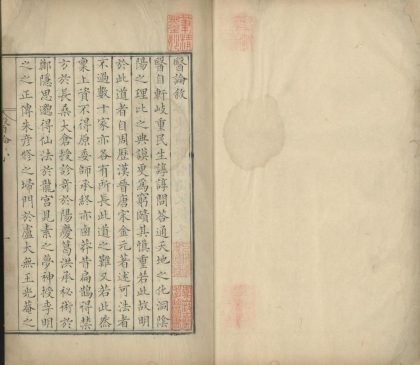 醫論敘
醫自軒岐重民生諄諄問答通天地之化洞陰
陽之理比之典謨更為窮賾其慎重若此故明
於此道者自周歷漢晉唐宋金元著述可法者
不過數十家亦各有所長此道之難又若此然
稟上資不得原委師承終亦鹵莽昔扁鵲得禁
方於長桑大倉授診奇於陽慶葛洪承秘術於
鄭隱思邈得仙法於龍宮見素之夢神授李明
之之正傳朱彥修之埽門於盧大無王光菴之
醫論